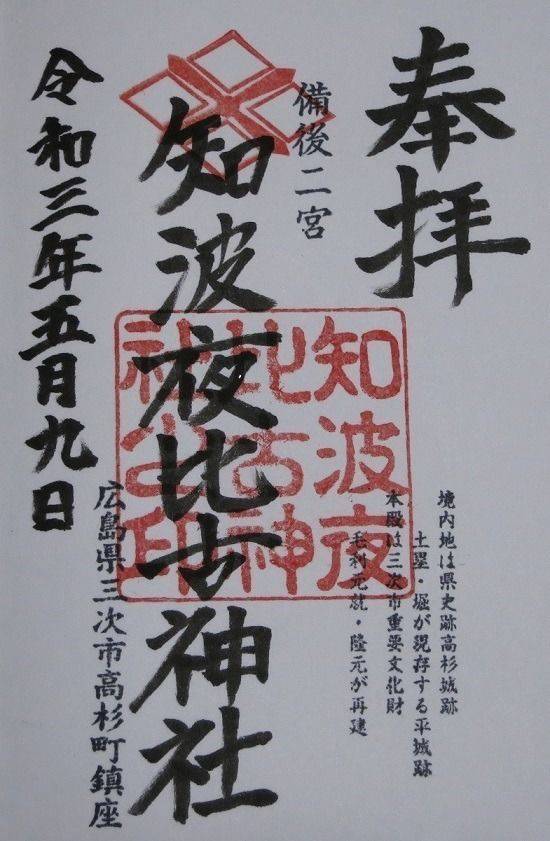 奉拝
境内地は県史跡高杉城跡
土塁・堀が現存する平城跡
本殿は三次市重要文化財
毛利元就・隆元が再建
備後二宮
知波夜比古神社
知波夜
比古神
社之印
広島県三次市高杉町鎮座
令和三年五月九日